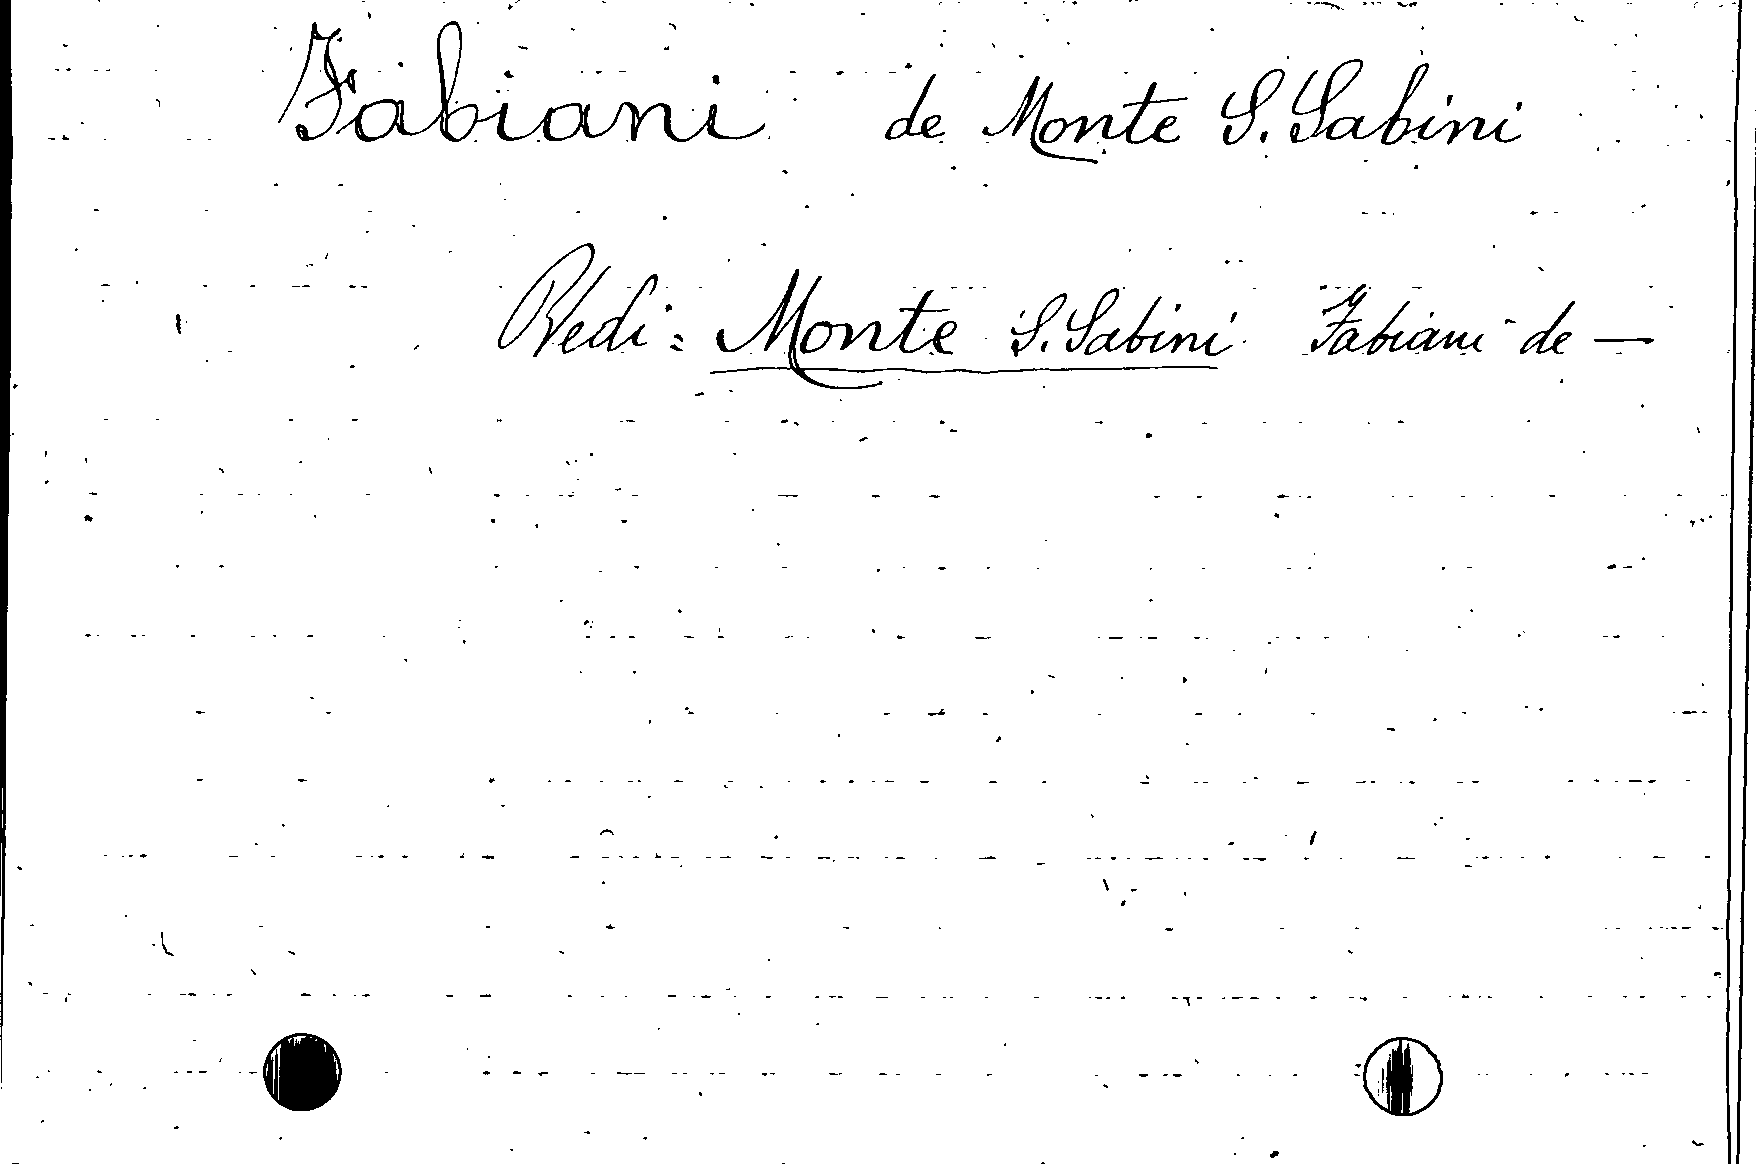 Fabiani de Monte S. Sabini
Vedi: Monte S. Sabini Fabiani de —